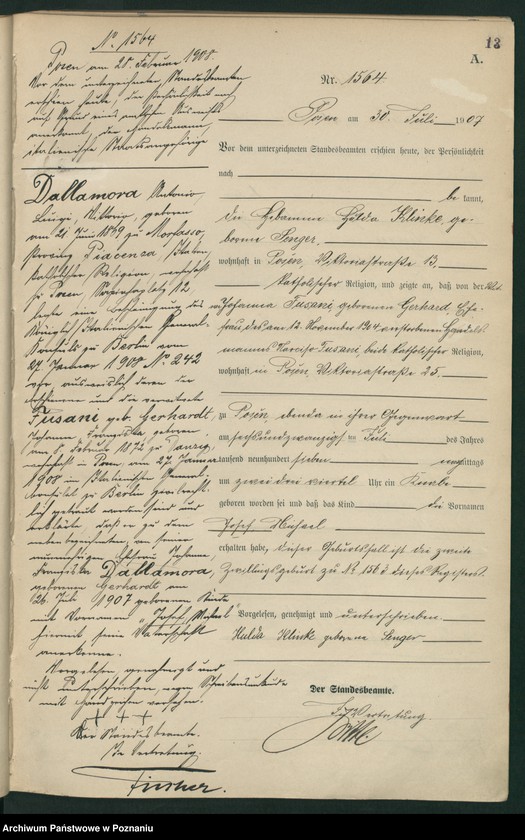 13
A.
Nr. 1564
Posen am 30. Juli 1907
Vor dem unterzeichneten Standesbeamten erschien heute, der Persönlichkeit
nach
be kannt,
die Hebamme Hulda Klinke, ge-
borene Senger
wohnhaft in Posen, Viktoriastraße 13,
katholischer Religion, und zeigte an, daß von der
Johanna Fusani geborenen Gerhard, Ehe-
frau des am 12. November 1904 verstorbenen Handels-
mannes Narciso Fusani, beide katholischer Religion,
wohnhaft in Posen, Viktoriastraße 25.
zu Posen ebenda in ihrer Gegenwart
am sechsundzwanzigsten Juli des Jahres
tausend neunhundert sieben mittags
um zwei drei viertel Uhr ein Knabe
geboren worden sei und daß das Kind die Vornamen
Josef Michael
erhalten habe, dieser Geburtsfall ist die zweite
Zwillingsgeburt zu Nr. 1563 dieses Registers.
Vorgelesen, genehmigt und unterschrieben
Hulda Klinke geborene Senger
Der Standesbeamte.
In Vertretung.
No. 1564
Posen am 28. Februar 1908.
Vor dem unterzeichneten Standesbeamten
erschien heute, der Persönlichkeit nach
auf Grund
anerkannt, der
italienische Staatsangehörige
Dallamora Antonio,
Luigi, Viktorio, geboren
am 21. Juni 1879 zu Morfasso,
Provinz Piacenza, Italien,
katholischer Religion, wohnhaft
zu Posen, Sapiehaplatz 12,
legte eine Bescheinigung des
Königlich Italienischen General-
konsuls zu Berlin vom
27. Januar 1908 No. 242
vor, ausweislich deren der
erschienene und die verwitwete
Fusani geb. Gerhardt,
Johanna, Franziska, geboren
am 8. Februar 1872 zu Danzig,
wohnhaft in Posen, am 27. Januar
1908 im Italienischen General-
konsulat zu Berlin
getraut worden sind und
erklärte, daß er zu dem
nebenbezeichneten, von seiner
nunmehrigen Ehefrau Johanna
Franziska Dallamora
geborenen Gerhardt am
26. Juli 1907 geborenen Kinde
mit Vornamen "Josef, Michael"
hiermit seine Vaterschaft
anerkenne.
Vorgelesen, genehmigt und
nicht unterschrieben, wegen Schreibensunkunde
mit Handzeichen versehen.
+ + +
Der Standesbeamte.
In Vertretung.
Fischer.
Archiwum Państwowe w Poznaniu